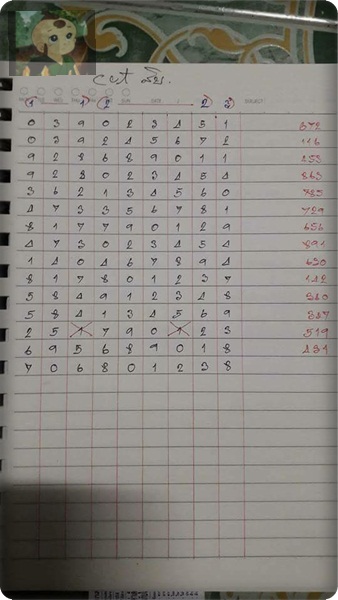 1 1 2 2 3
0 3 9 0 2 3 4 5 1 672
0 3 9 2 4 5 6 7 2 116
9 2 8 6 8 9 0 1 1 253
9 2 8 0 2 3 4 5 4 863
3 6 2 1 3 4 5 6 0 785
4 7 3 3 5 6 7 8 1 729
8 1 7 7 9 0 1 2 9 656
4 7 3 0 2 3 4 5 4 891
1 4 0 4 6 7 8 9 4 630
8 1 7 8 0 1 2 3 7 142
5 8 4 9 1 2 3 4 8
5 8 4 1 3 4 5 6 9
2 5 7 9 0 2 3 519
6 9 5 6 8 9 0 1 8 431
7 0 6 8 0 1 2 3 8